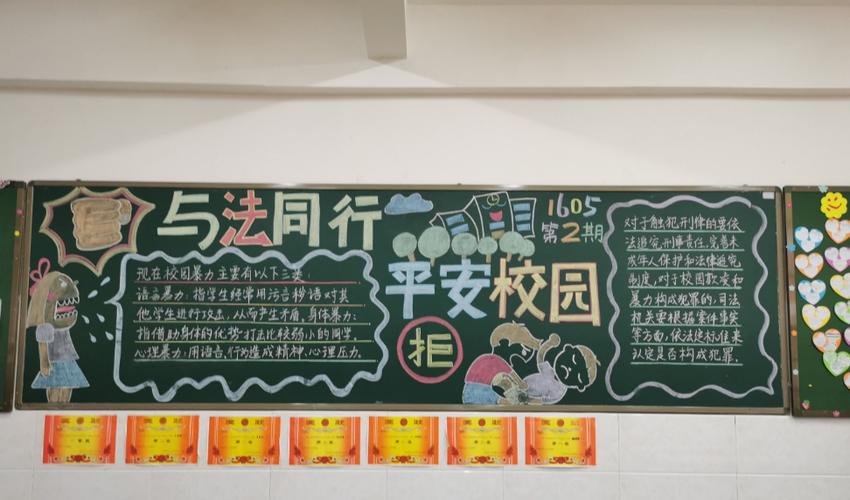 与法同行
现在校园暴力主要有以下三类:
语言暴力:指学生经常用污言秽语对其
他学生进行攻击,从而产生矛盾,身体暴力:
指借助身体的优势打法比较弱小的同学。
心理暴力,用语言、行为造成精神、心理压力。
1605
第2期
平安校园
拒
对于触犯刑律的要依
法追究刑事责任,完善未
成年人保护和法律追究
制度,对于校园欺凌和
暴力构成犯罪的,司法
机关要根据案件事实
等方面,依法定标准来
认定是否构成犯罪。